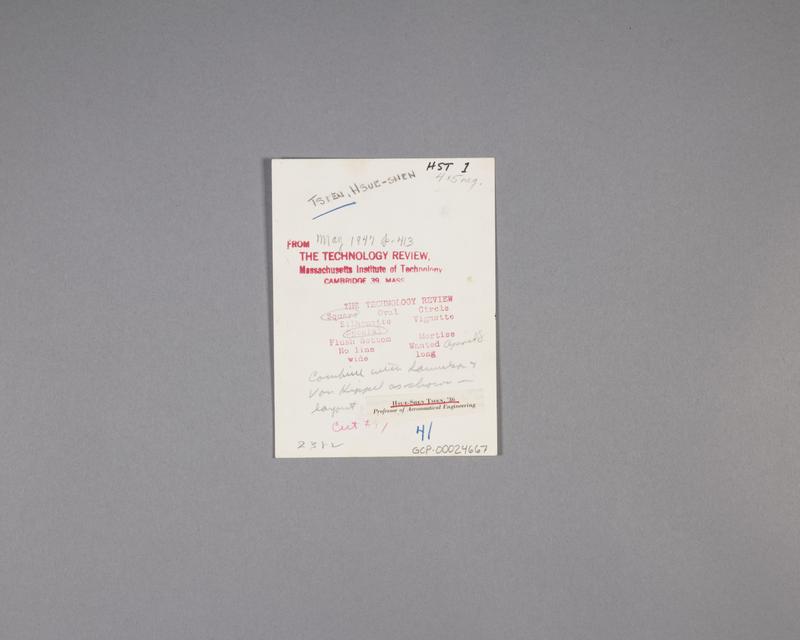 HST 1
4x5 neg.
TSIEN, HSUE-SHEN
FROM May 1947 p-413
THE TECHNOLOGY REVIEW,
Massachusetts Institute of Technology
CAMBRIDGE 39, MASS.
THE TECHNOLOGY REVIEW
Square Oval Circle
Silhouette Vignette
Special
Flush Bottom Mortise
No line Wanted April 8
wide long
Combine with
Von Hippel as shown —
layout
HSUE-SHEN TSIEN, '36
Professor of Aeronautical Engineering
Cut #
41
2382
GCP-00024667